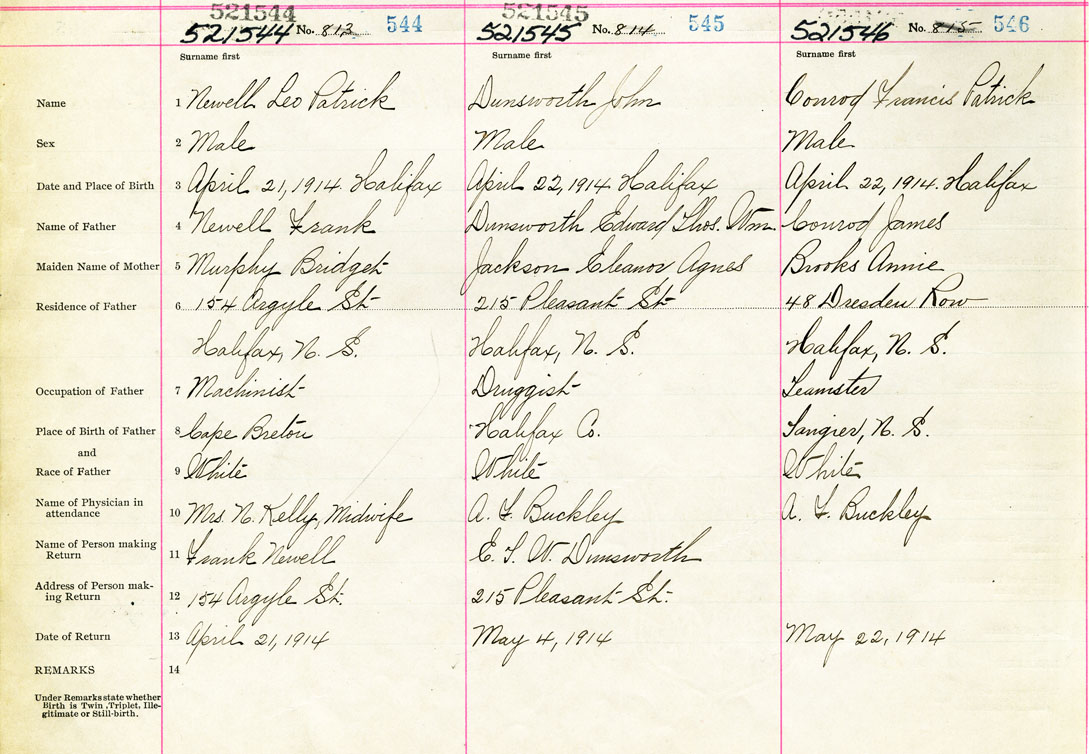 521544 521545
521544 No. 813 544 521545 No. 814 545 521546 No. 815 546
Surname first Surname first Surname first
Name 1 Newell Leo Patrick Dunsworth John Conrod Francis Patrick
Sex 2 Male Male Male
Date and Place of Birth 3 April 21, 1914. Halifax April 22, 1914 Halifax April 22, 1914. Halifax
Name of Father 4 Newell Frank Dunsworth Edward Thos. Wm. Conrod James
Maiden Name of Mother 5 Murphy Bridget Jackson Eleanor Agnes Brooks Annie
Residence of Father 6 154 Argyle St 215 Pleasant St 48 Dresden Row
Halifax, N. S. Halifax, N. S. Halifax, N. S.
Occupation of Father 7 Machinist Druggist Teamster
Place of Birth of Father 8 Cape Breton Halifax Co. Tangier, N. S.
and
Race of Father 9 White White White
Name of Physician in
attendance 10 Mrs. N. Kelly, Midwife A. F. Buckley A. F. Buckley
Name of Person making
Return 11 Frank Newell E. T. W. Dunsworth
Address of Person mak-
ing Return 12 154 Argyle St. 215 Pleasant St.
Date of Return 13 April 21, 1914 May 4, 1914 May 22, 1914
REMARKS 14
Under Remarks state whether
Birth is Twin, Triplet, Ille-
gitimate or Still-birth.